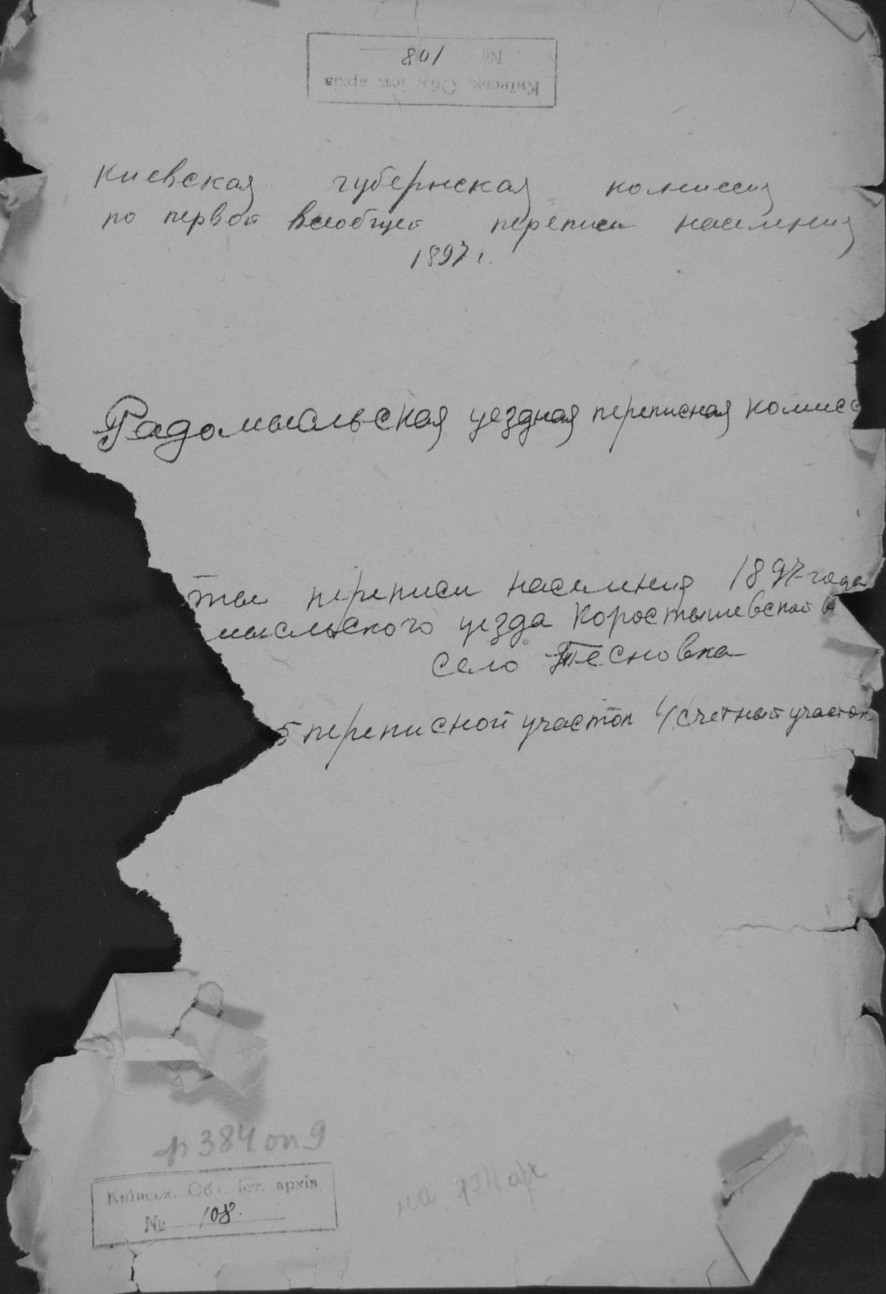 801
№
Київськ. Обл. іст. архів
Киевская губернская комиссия
по первой всеобщей переписи населения
1897 г.
Радомысльская уездная переписная комисс
ты переписи населения 1897 года
мысльского уезда Коростышевской в
село Тесновка
5 переписной участок 4 счетный участок
ф 384 оп 9
Київськ. Обл. іст. архів
№ 108.
на 174 арк